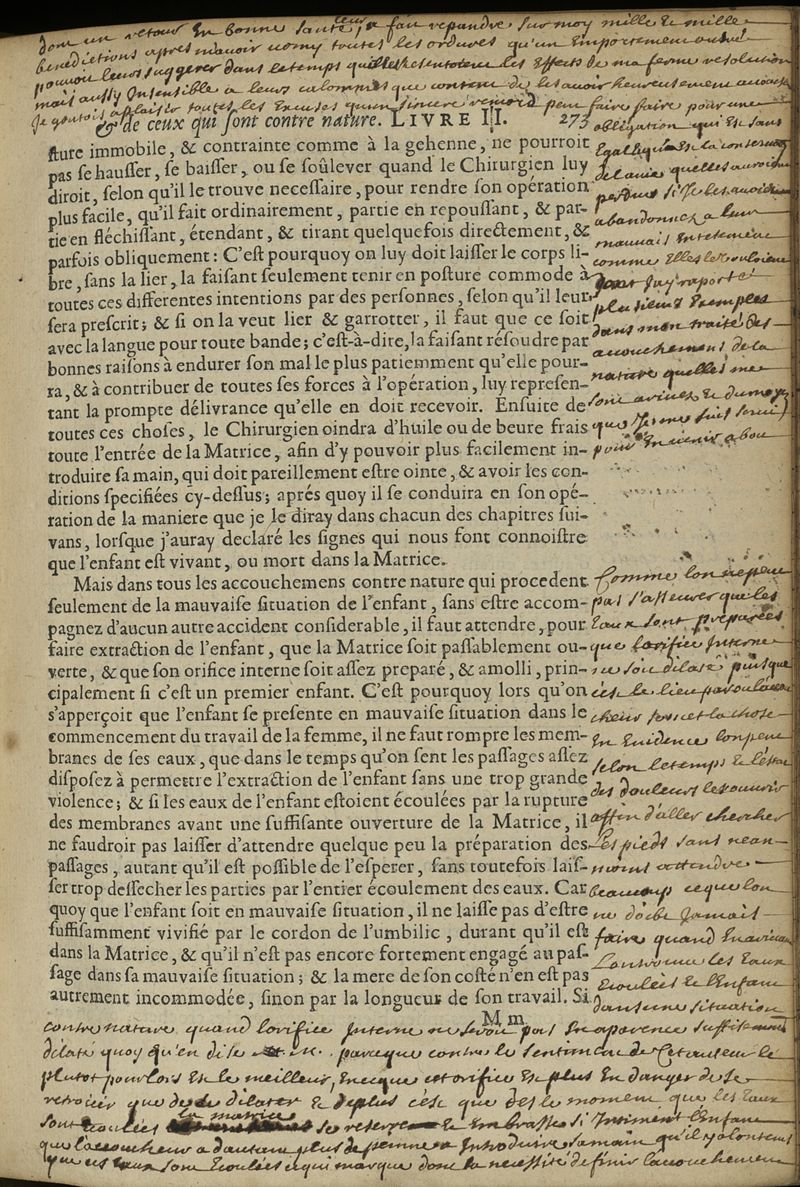 dont un retour En bonne santé leur a fait repandre sur moy mille & mille
benedictions apres m'avoir vomy toutes les ordures qu'un Emportement outré
pouvoit leurs suggerer dans le temps les Effects de ma ferme resolution
mais aussy Insensible a leurs calomnies que content de les avoir heureusement
Je goutois a plaisir toutes les Excuses qu'un sincere remord peut faire faire pour une
& de ceux qui ſont contre nature. LIVRE II. 273
ſture immobile, & contrainte comme à la gehenne, ne pourroit
pas ſe hauſſer, ſe baiſſer, ou ſe ſoûlever quand le Chirurgien luy
diroit, ſelon qu'il le trouve neceſſaire, pour rendre ſon opération
plus facile, qu'il fait ordinairement, partie en repouſſant, & par-
tie en fléchiſſant, étendant, & tirant quelquefois directement, &
parfois obliquement : C'eſt pourquoy on luy doit laiſſer le corps li-
bre, ſans la lier, la faiſant ſeulement tenir en poſture commode à
toutes ces differentes intentions par des perſonnes, ſelon qu'il leur
ſera preſcrit; & ſi on la veut lier & garrotter, il faut que ce ſoit
avec la langue pour toute bande; c'eſt-à-dire, la faiſant réſoudre par
bonnes raiſons à endurer ſon mal le plus patiemment qu'elle pour-
ra, & à contribuer de toutes ſes forces à l'opération, luy repreſen-
tant la prompte délivrance qu'elle en doit recevoir. Enſuite de
toutes ces choſes, le Chirurgien oindra d'huile ou de beure frais
toute l'entrée de la Matrice, afin d'y pouvoir plus facilement in-
troduire ſa main, qui doit pareillement eſtre ointe, & avoir les con-
ditions ſpecifiées cy-deſſus; aprés quoy il ſe conduira en ſon opé-
ration de la maniere que je le diray dans chacun des chapitres ſui-
vans, lorſque j'auray declaré les ſignes qui nous font connoiſtre
que l'enfant eſt vivant, ou mort dans la Matrice.
Mais dans tous les accouchemens contre nature qui procedent
ſeulement de la mauvaiſe ſituation de l'enfant, ſans eſtre accom-
pagnez d'aucun autre accident conſiderable, il faut attendre, pour
faire extraction de l'enfant, que la Matrice ſoit paſſablement ou-
verte, & que ſon orifice interne ſoit aſſez preparé, & amolli, prin-
cipalement ſi c'eſt un premier enfant. C'eſt pourquoy lors qu'on
s'apperçoit que l'enfant ſe preſente en mauvaiſe ſituation dans le
commencement du travail de la femme, il ne faut rompre les mem-
branes de ſes eaux, que dans le temps qu'on ſent les paſſages aſſez
diſpoſez à permettre l'extraction de l'enfant ſans une trop grande
violence; & ſi les eaux de l'enfant eſtoient écoulées par la rupture
des membranes avant une ſuffiſante ouverture de la Matrice, il
ne faudroit pas laiſſer d'attendre quelque peu la préparation des
paſſages, autant qu'il eſt poſſible de l'eſperer, ſans toutefois laiſ-
ſer trop deſſecher les parties par l'entier écoulement des eaux. Car
quoy que l'enfant ſoit en mauvaiſe ſituation, il ne laiſſe pas d'eſtre
ſuffiſamment vivifié par le cordon de l'umbilic, durant qu'il eſt
dans la Matrice, & qu'il n'eſt pas encore fortement engagé au paſ-
ſage dans ſa mauvaiſe ſituation; & la mere de ſon coſté n'en eſt pas
autrement incommodée, ſinon par la longueur de ſon travail. Si
M m
obligation qui Est sans
Egalle
de la vie quelles auroient
perdue si Je les avoit
abandonnez a leur
mauvais Entetement
comme Elles le vouloient
dont Jay raporté
plusieurs Exemples
dans mon traité des
accouchemens de la
nature quelles me
sont arivées & du moyen
que Je me suis servit
pour En venir a bou
Comme lon ne peut
pas s'asseurer que les
Eaux sont preparées
que lorifice Interne
ne soit dilaté puisque
cest le lieu par ou laccou
cheur
En Evidence lon peut
selon le temps & lestat
des douleurs les ouvrir
affin d'aller chercher
Les pieds sans nean-
moins attendre
beaucoup ce que lon
ne doibt Jamais
faire quand
Lon trouve les Eaux
Ecoulées & l'Enfant
dans une situation
contre nature quand lorifice Interne ne seroit pas En aparence suffisement
dilaté quoy qu'en dise parceque contre le sentiment de Cet auteur le
plutot pour lors Est le meilleur, cet orifice Est plus En danger de se
retrecir que de se dilater & deplus c'est que des le moment que les Eaux
sont Ecoulées la matrice se reserre & Embrasse si Intiment l'Enfant
que laccoucheur a dautant plus de peine a Introduire sa main qu'il y a longtems
que ces Eaux sont Ecoulées ce qui marque donc la necessité de finir laccouchement